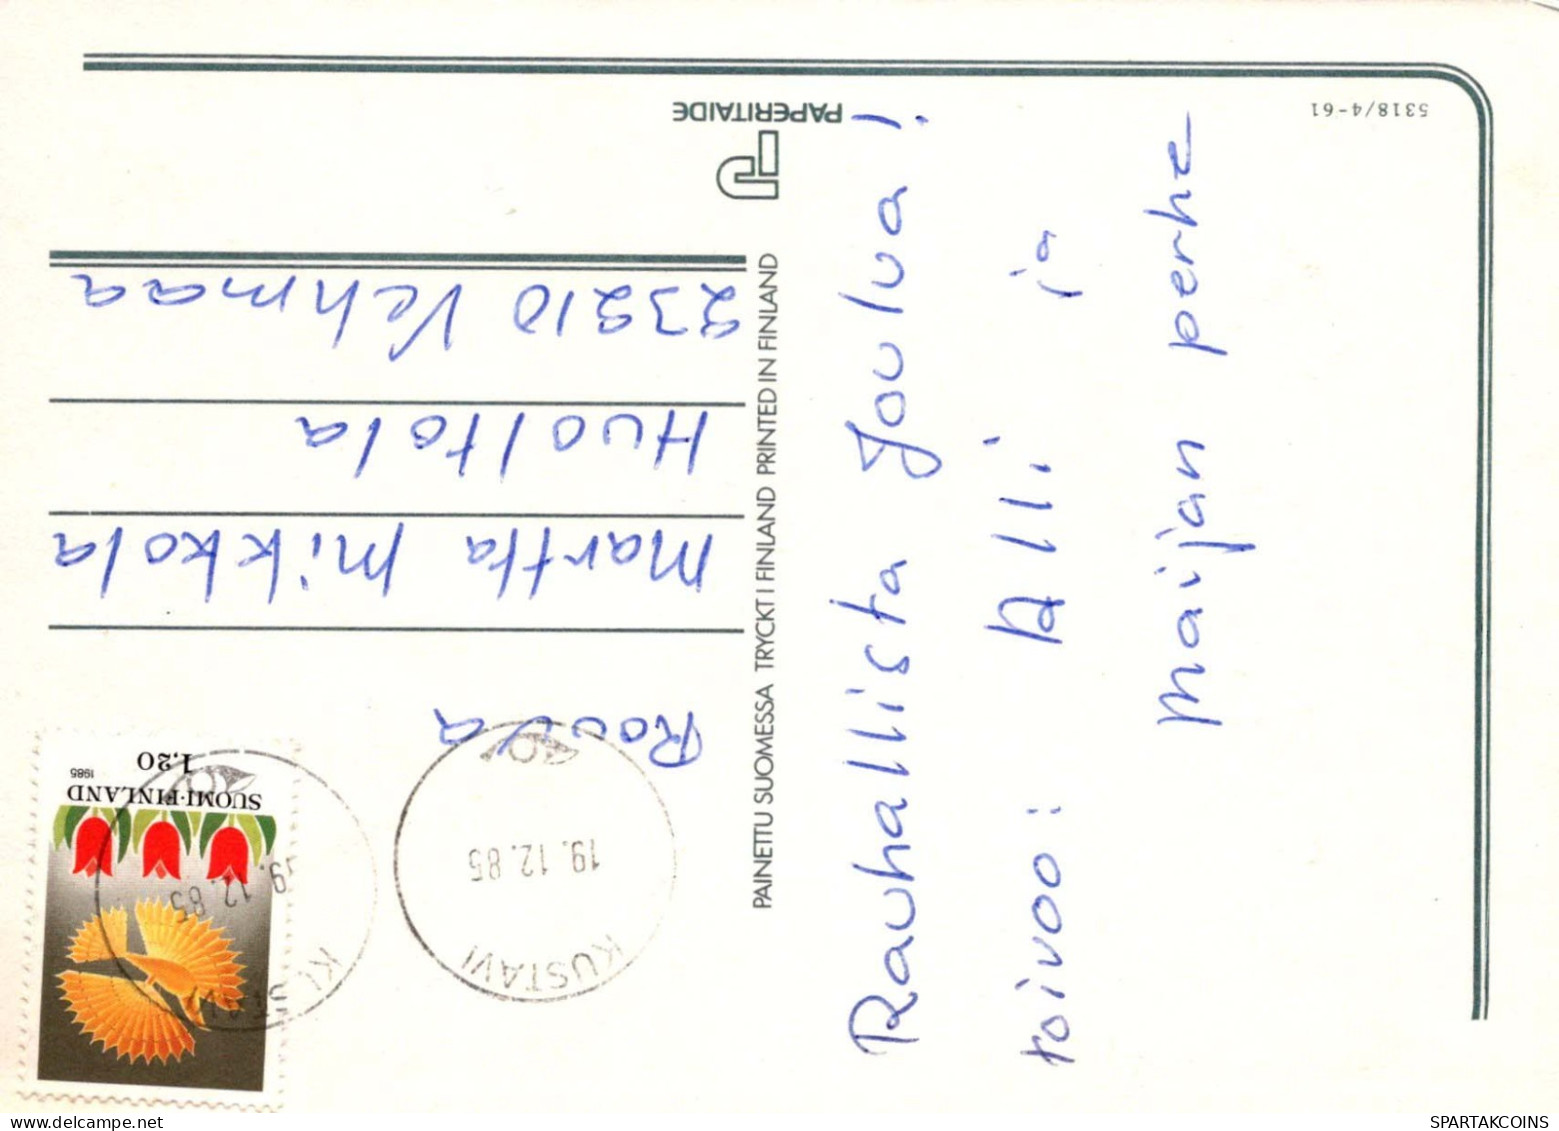 Rauhallista Joulua!
toivoo: Alli ja
Maijan perhe
PAINETTU SUOMESSA TRYCKT I FINLAND PRINTED IN FINLAND
PAPERITAIDE
5318/4-61
SUOMI-FINLAND
1985
1.20
KUSTAVI
19.12.85
KUSTAVI
19.12.85
Rouva
Martta Mikkola
Huoltola
23210 Vehmaa
SPARTAKCOINS